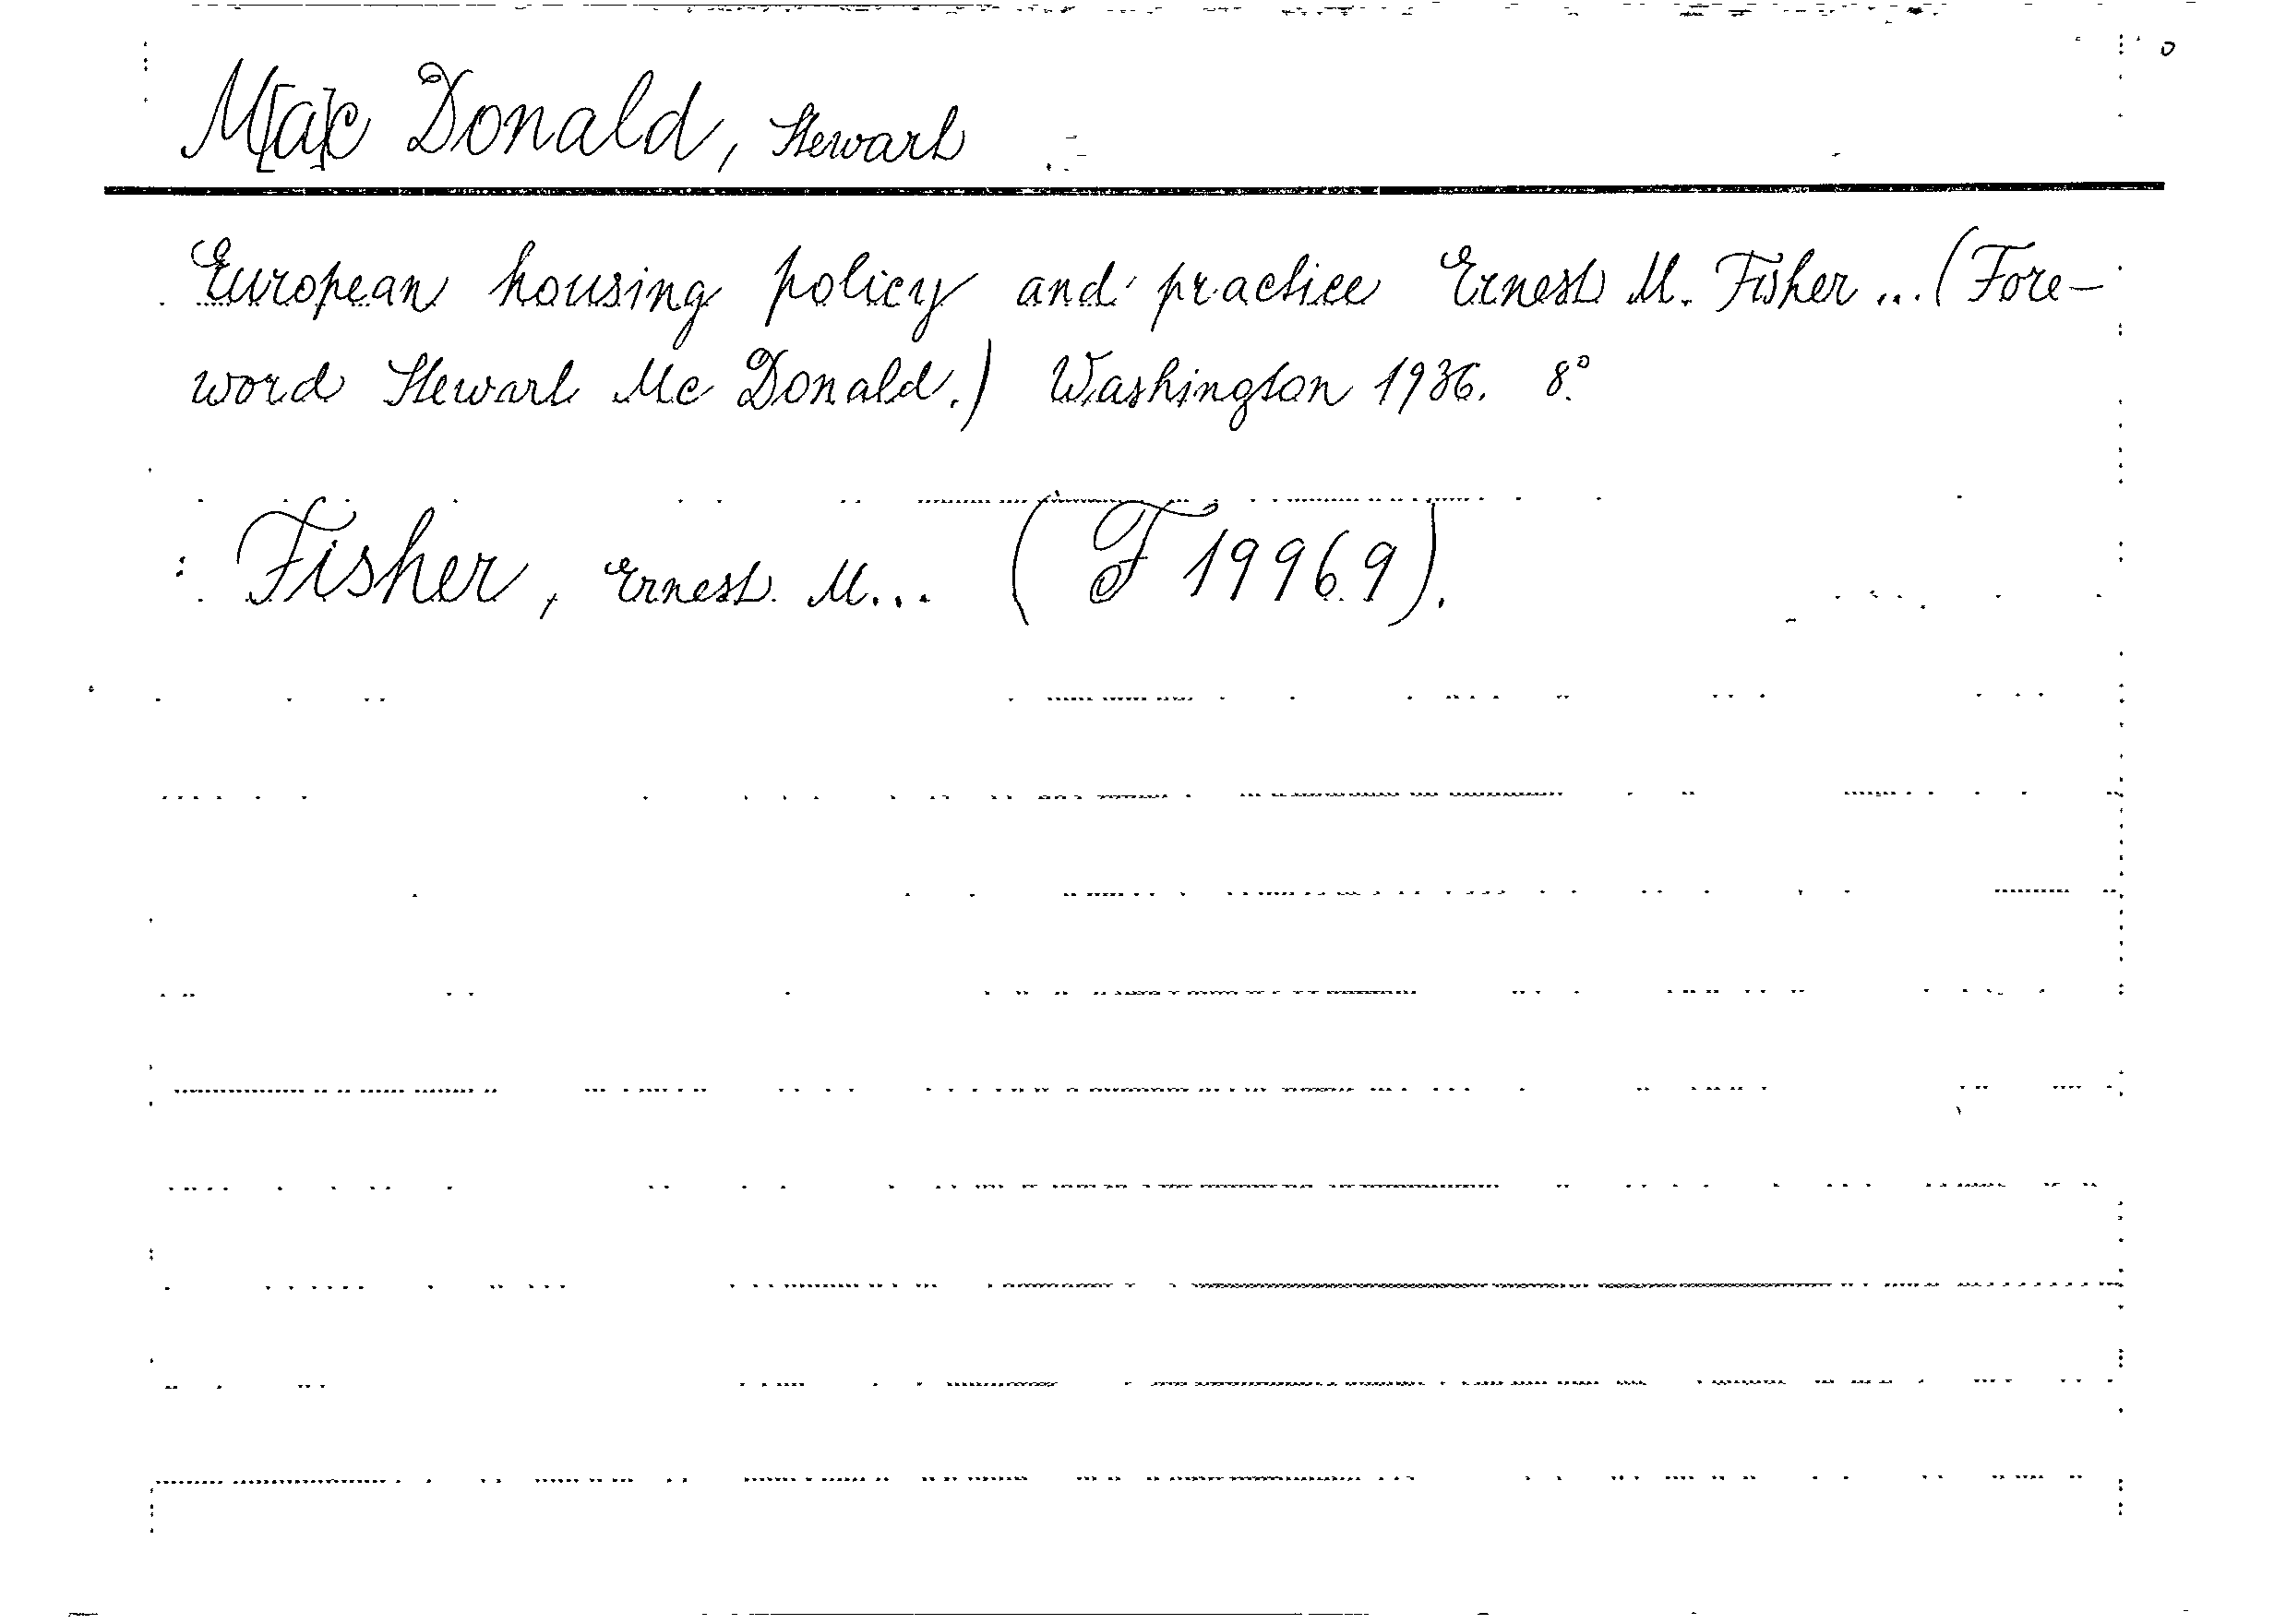 M[a]c Donald, Stewart
European housing policy and practice Ernest M. Fisher ... (Fore-
word Stewart Mc Donald.) Washington 1936. 8°.
: Fisher, Ernest M... (F 19969).